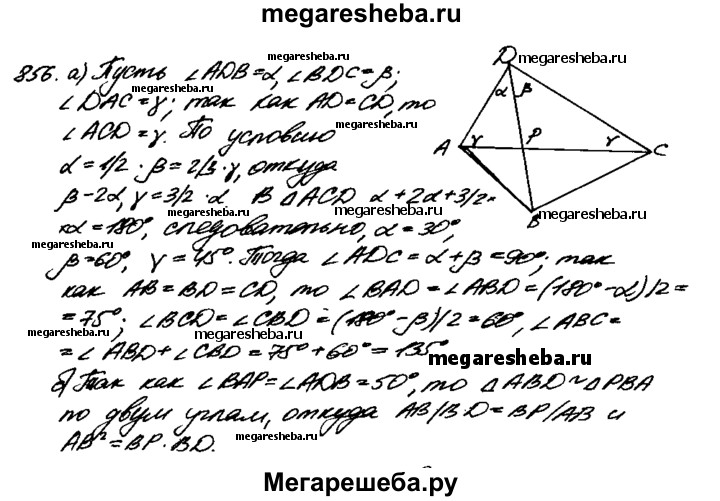 megaresheba.ru
856. а) Пусть ∠ADB=α, ∠BDC=β;
∠DAC=γ; так как AD=CD, то
∠ACD=γ. По условию
α=1/2·β=2/3·γ, откуда
β-2α, γ=3/2·α В △ACD α+2α+3/2×
×α=180°, следовательно, α=30°,
β=60°, γ=45°. Тогда ∠ADC=α+β=90°; так
как AB=BD=CD, то ∠BAD=∠ABD=(180°-α)/2=
=75°; ∠BCD=∠CBD=(180°-β)/2=60°, ∠ABC=
=∠ABD+∠CBD=75°+60°=135°
б) Так как ∠BAP=∠ADB=50°, то △ABD~△PBA
по двум углам, откуда AB/BD=BP/AB и
AB²=BP·BD.
D
α β
A γ P γ C
B
megaresheba.ru
megaresheba.ru
megaresheba.ru
megaresheba.ru
megaresheba.ru
megaresheba.ru
megaresheba.ru
megaresheba.ru
megaresheba.ru
megaresheba.ru
Мегарешеба.ру